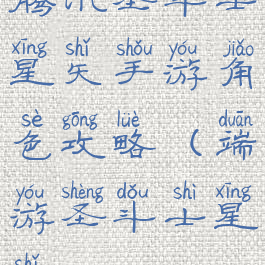 腾讯圣斗士
xīng shǐ shǒu yóu jiǎo
星矢手游角
sè gōng lüè duān
色攻略（端
yóu shèng dǒu shì xīng
游圣斗士星
shǐ